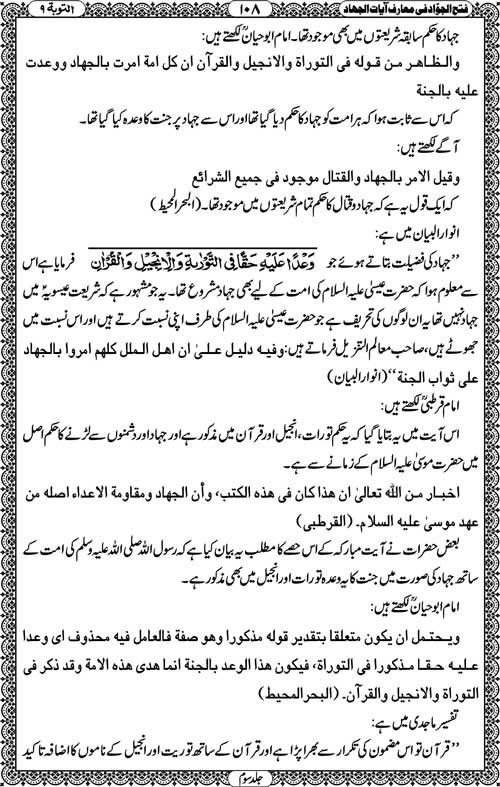 فتح الجوّاد فی معارف آیات الجهاد ۱۰۸ التوبة ۹
جہاد کا حکم سابقہ شریعتوں میں بھی موجود تھا۔ امام ابوحیانؒ لکھتے ہیں:
والظاهر من قوله فی التوراة والانجیل والقرآن ان کل امة امرت بالجهاد ووعدت
علیه بالجنة
کہ اس سے ثابت ہوا کہ ہر امت کو جہاد کا حکم دیا گیا تھا اور اس سے جہاد پر جنت کا وعدہ کیا گیا تھا۔
آگے لکھتے ہیں:
وقیل الامر بالجهاد والقتال موجود فی جمیع الشرائع
کہ ایک قول یہ ہے کہ جہاد و قتال کا حکم تمام شریعتوں میں موجود تھا۔ (البحر المحیط)
انوار البیان میں ہے:
’’جہاد کی فضیلت بتاتے ہوئے جو وَعْدًا عَلَيْهِ حَقًّا فِي التَّوْرٰىةِ وَالْاِنْجِيْلِ وَالْقُرْاٰنِ فرمایا ہے اس
سے معلوم ہوا کہ حضرت عیسیٰ علیہ السلام کی امت کے لیے بھی جہاد مشروع تھا۔ یہ جو مشہور ہے کہ شریعت عیسویہ میں
جہاد نہیں تھا یہ ان لوگوں کی تحریف ہے جو حضرت عیسیٰ علیہ السلام کی طرف اپنی نسبت کرتے ہیں اور اس نسبت میں
جھوٹے ہیں، صاحب معالم التنزیل فرماتے ہیں: وفیه دلیل علیٰ ان اهل الملل کلهم امروا بالجهاد
علی ثواب الجنة‘‘ (انوار البیان)
امام قرطبیؒ لکھتے ہیں:
اس آیت میں یہ بتایا گیا کہ یہ حکم تورات، انجیل اور قرآن میں مذکور ہے اور جہاد اور دشمنوں سے لڑنے کا حکم اصل
میں حضرت موسیٰ علیہ السلام کے زمانے سے ہے۔
اخبار من الله تعالیٰ ان هذا کان فی هذه الکتب، وأن الجهاد ومقاومة الاعداء اصله من
عهد موسیٰ علیه السلام۔ (القرطبی)
بعض حضرات نے آیت مبارکہ کے اس حصے کا مطلب یہ بیان کیا ہے کہ رسول اللہ صلی اللہ علیہ وسلم کی امت کے
ساتھ جہاد کی صورت میں جنت کا یہ وعدہ تورات اور انجیل میں بھی مذکور ہے۔
امام ابوحیانؒ لکھتے ہیں:
ویحتمل ان یکون متعلقا بتقدیر قوله مذکورا وهو صفة فالعامل فیه محذوف ای وعدا
علیه حقا مذکورا فی التوراة، فیکون هذا الوعد بالجنة انما هدی هذه الامة وقد ذکر فی
التوراة والانجیل والقرآن۔ (البحر المحیط)
تفسیر ماجدی میں ہے:
’’قرآن تو اس مضمون کی تکرار سے بھرا پڑا ہے اور قرآن کے ساتھ توریت اور انجیل کے ناموں کا اضافہ تاکید
جلد سوم